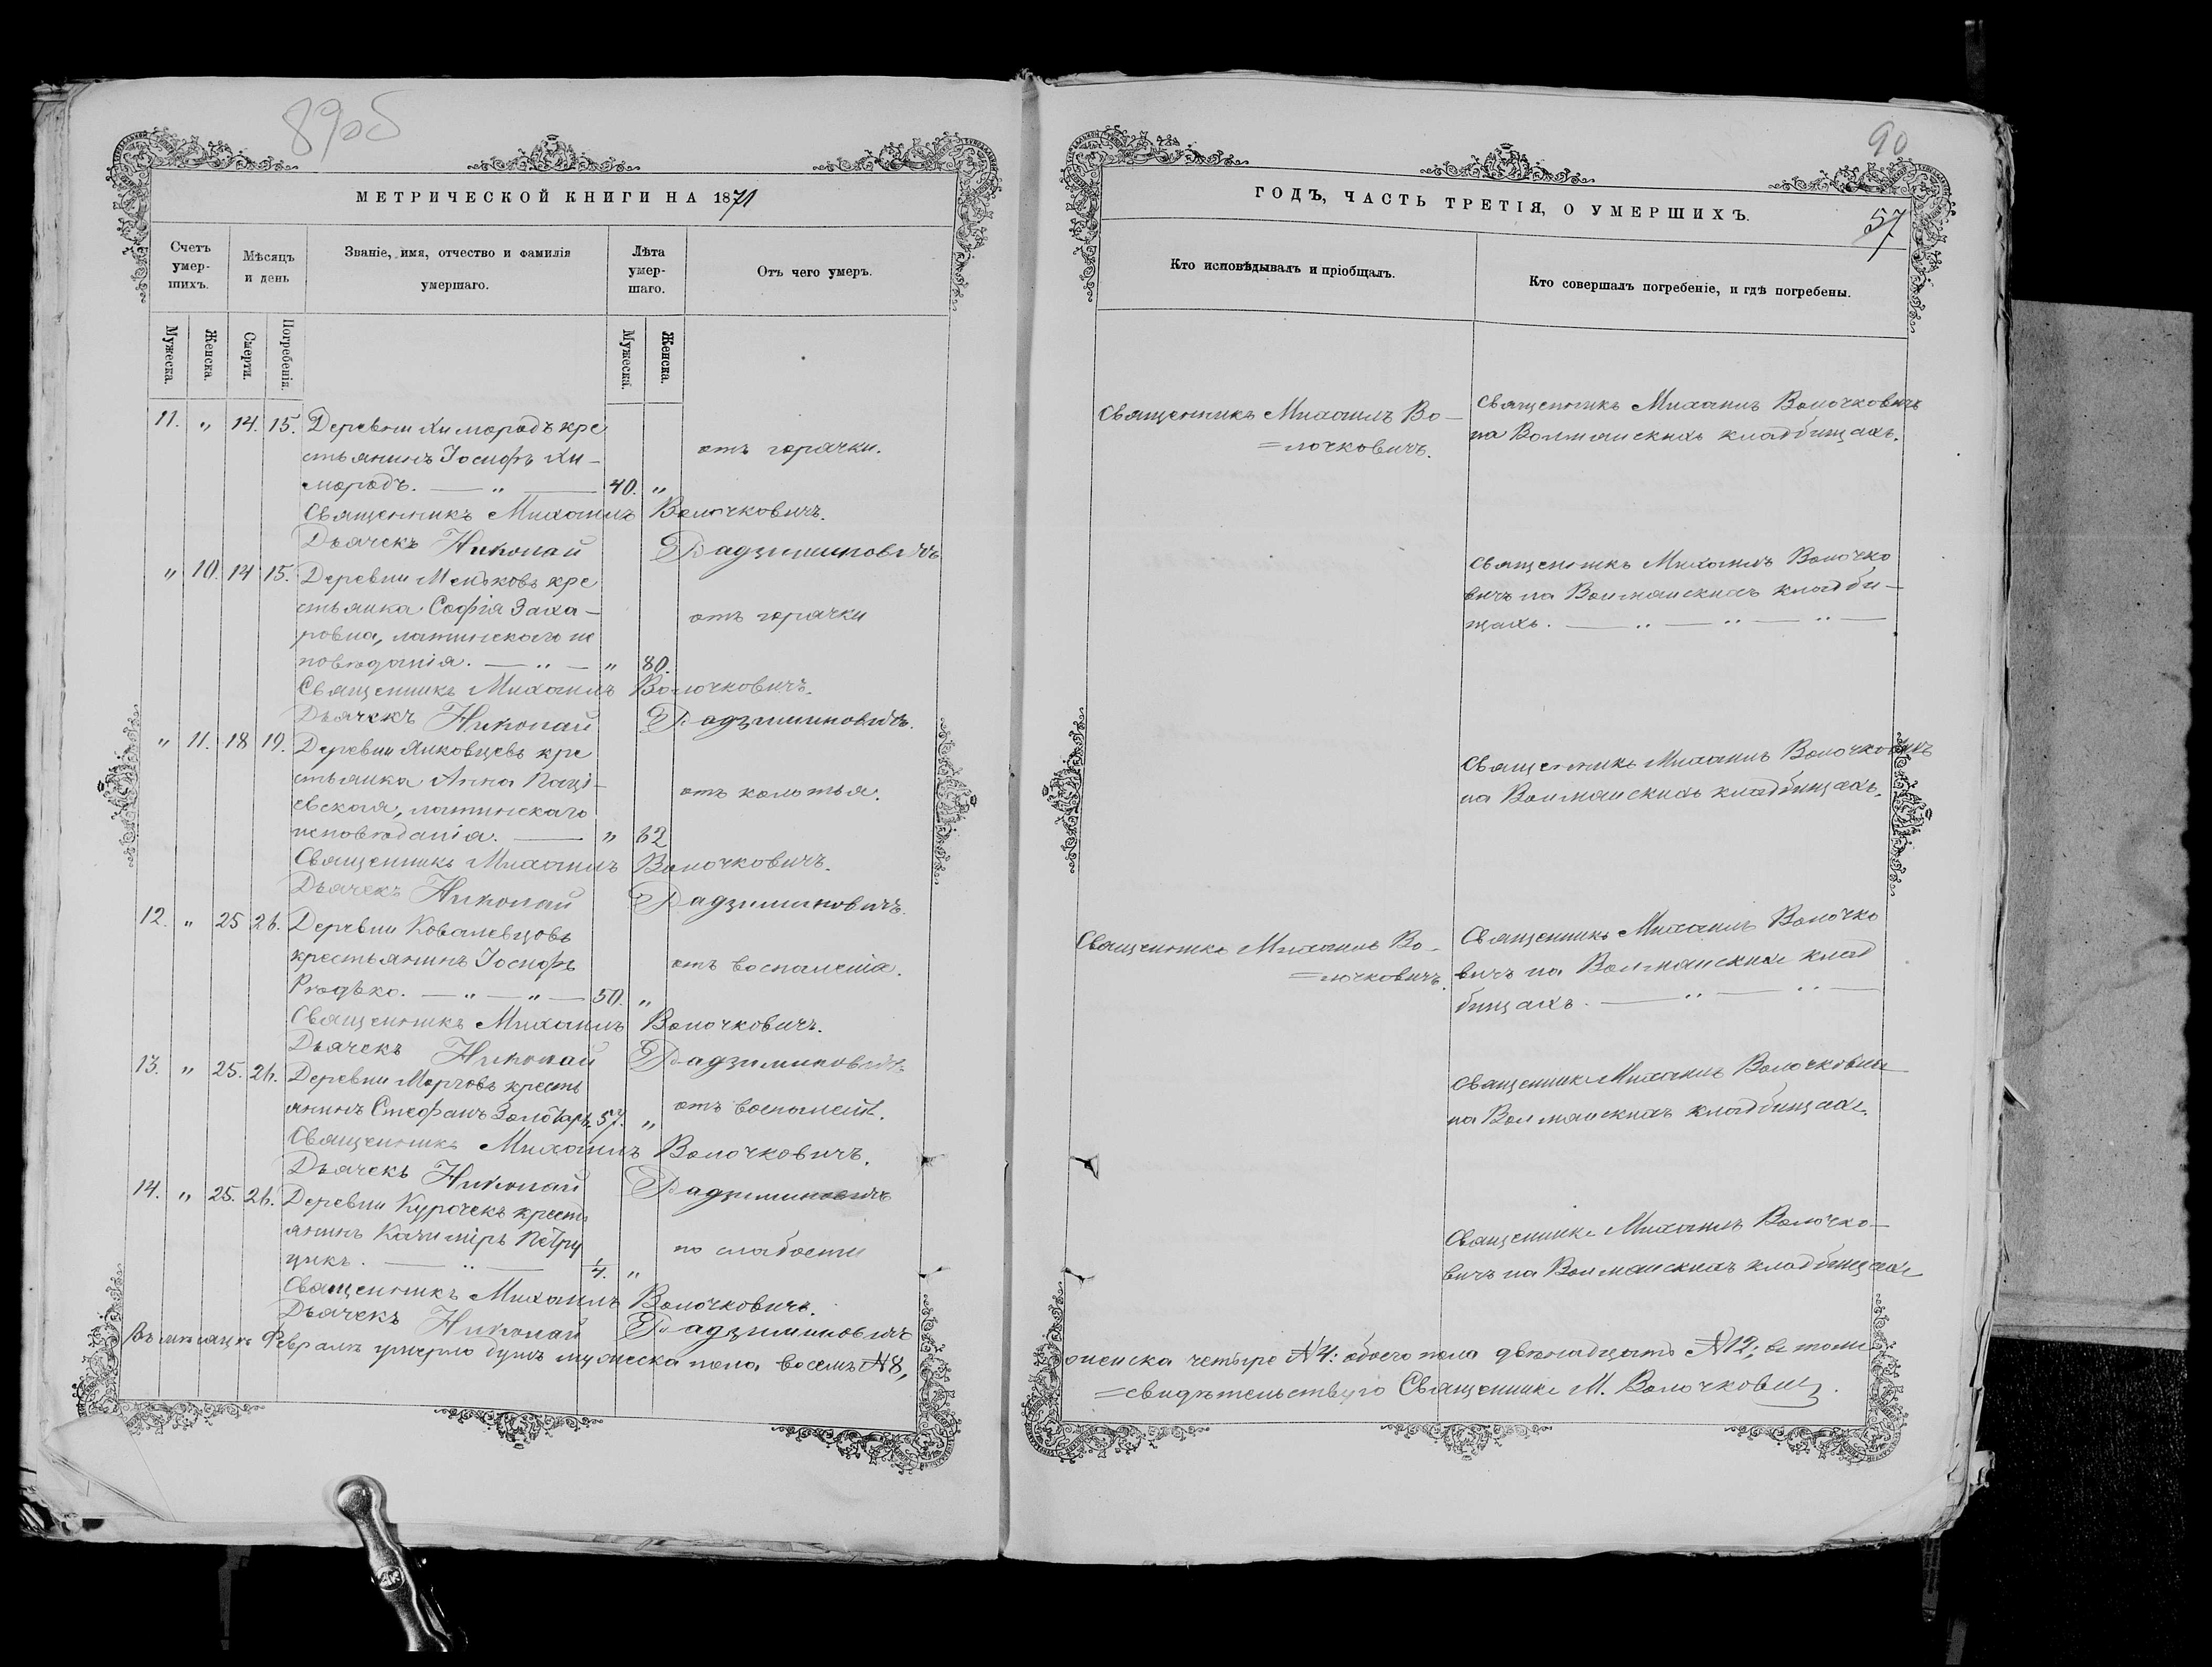 89об
МЕТРИЧЕСКОЙ КНИГИ НА 1871
Счетъ умершихъ.
Мѣсяцъ и день
Званіе, имя, отчество и фамилія умершаго.
Лѣта умершаго.
Отъ чего умеръ.
Мужеска.
Женска.
Смерти.
Погребенія.
Мужеска.
Женска.
11. " 14. 15. Деревни Химородъ кре
стьянинъ Іосифъ Хи-
мородъ. — " — 40. "
отъ горячки.
Священникъ Михаилъ Волочковичъ.
Дьячекъ Николай Радзиминовичъ
" 10. 14 15. Деревни Меньковъ кре
стьянка Софія Заха-
ровна, латинскаго ис
повѣданія. — " — " 80.
отъ горячки
Священникъ Михаилъ Волочковичъ.
Дьячекъ Николай Радзиминовичъ.
" 11. 18 19. Деревни Янковцевъ кре
стьянка Анна Паці-
евская, латинскаго
исповѣданія. — " 62
отъ колотья.
Священникъ Михаилъ Волочковичъ.
Дьячекъ Николай Радзиминовичъ.
12. " 25 26. Деревни Ковалевцовъ
крестьянинъ Іосифъ
Редько. — " — " — 50. "
отъ воспаленія.
Священникъ Михаилъ Волочковичъ.
Дьячекъ Николай Радзиминовичъ
13. " 25. 26. Деревни Морговъ кресть
янинъ Стефанъ Золотарь. 57. "
отъ воспаленія.
Священникъ Михаилъ Волочковичъ.
Дьячекъ Николай Радзиминовичъ
14. " 25. 26. Деревни Курочекъ кресть
янинъ Казиміръ Петру
цикъ. — " — 4. "
по слабости
Священникъ Михаилъ Волочковичъ.
Дьячекъ Николай Радзиминовичъ
Въ мѣсяцѣ Февралѣ умерло душъ мужеска пола восемь №8,
90
ГОДЪ, ЧАСТЬ ТРЕТІЯ, О УМЕРШИХЪ.
57
Кто исповѣдывалъ и пріобщалъ.
Кто совершалъ погребеніе, и гдѣ погребены.
Священникъ Михаилъ Во-
=лочковичъ.
Священникъ Михаилъ Волочковичъ
на Волманскихъ кладбищахъ.
Священникъ Михаилъ Волочко
вичъ на Волманскихъ кладби-
щахъ. — " — " — " —
Священникъ Михаилъ Волочковичъ
на Волманскихъ кладбищахъ.
Священникъ Михаилъ Во-
=лочковичъ.
Священникъ Михаилъ Волочко
вичъ на Волманскихъ клад
бищахъ. — " — " —
Священникъ Михаилъ Волочковичъ
на Волманскихъ кладбищахъ.
Священникъ Михаилъ Волочко-
вичъ на Волманскихъ кладбищахъ
женска четыре №4: обоего пола двѣнадцать №12; въ томъ
=свидѣтельствую Священникъ М. Волочковичъ.